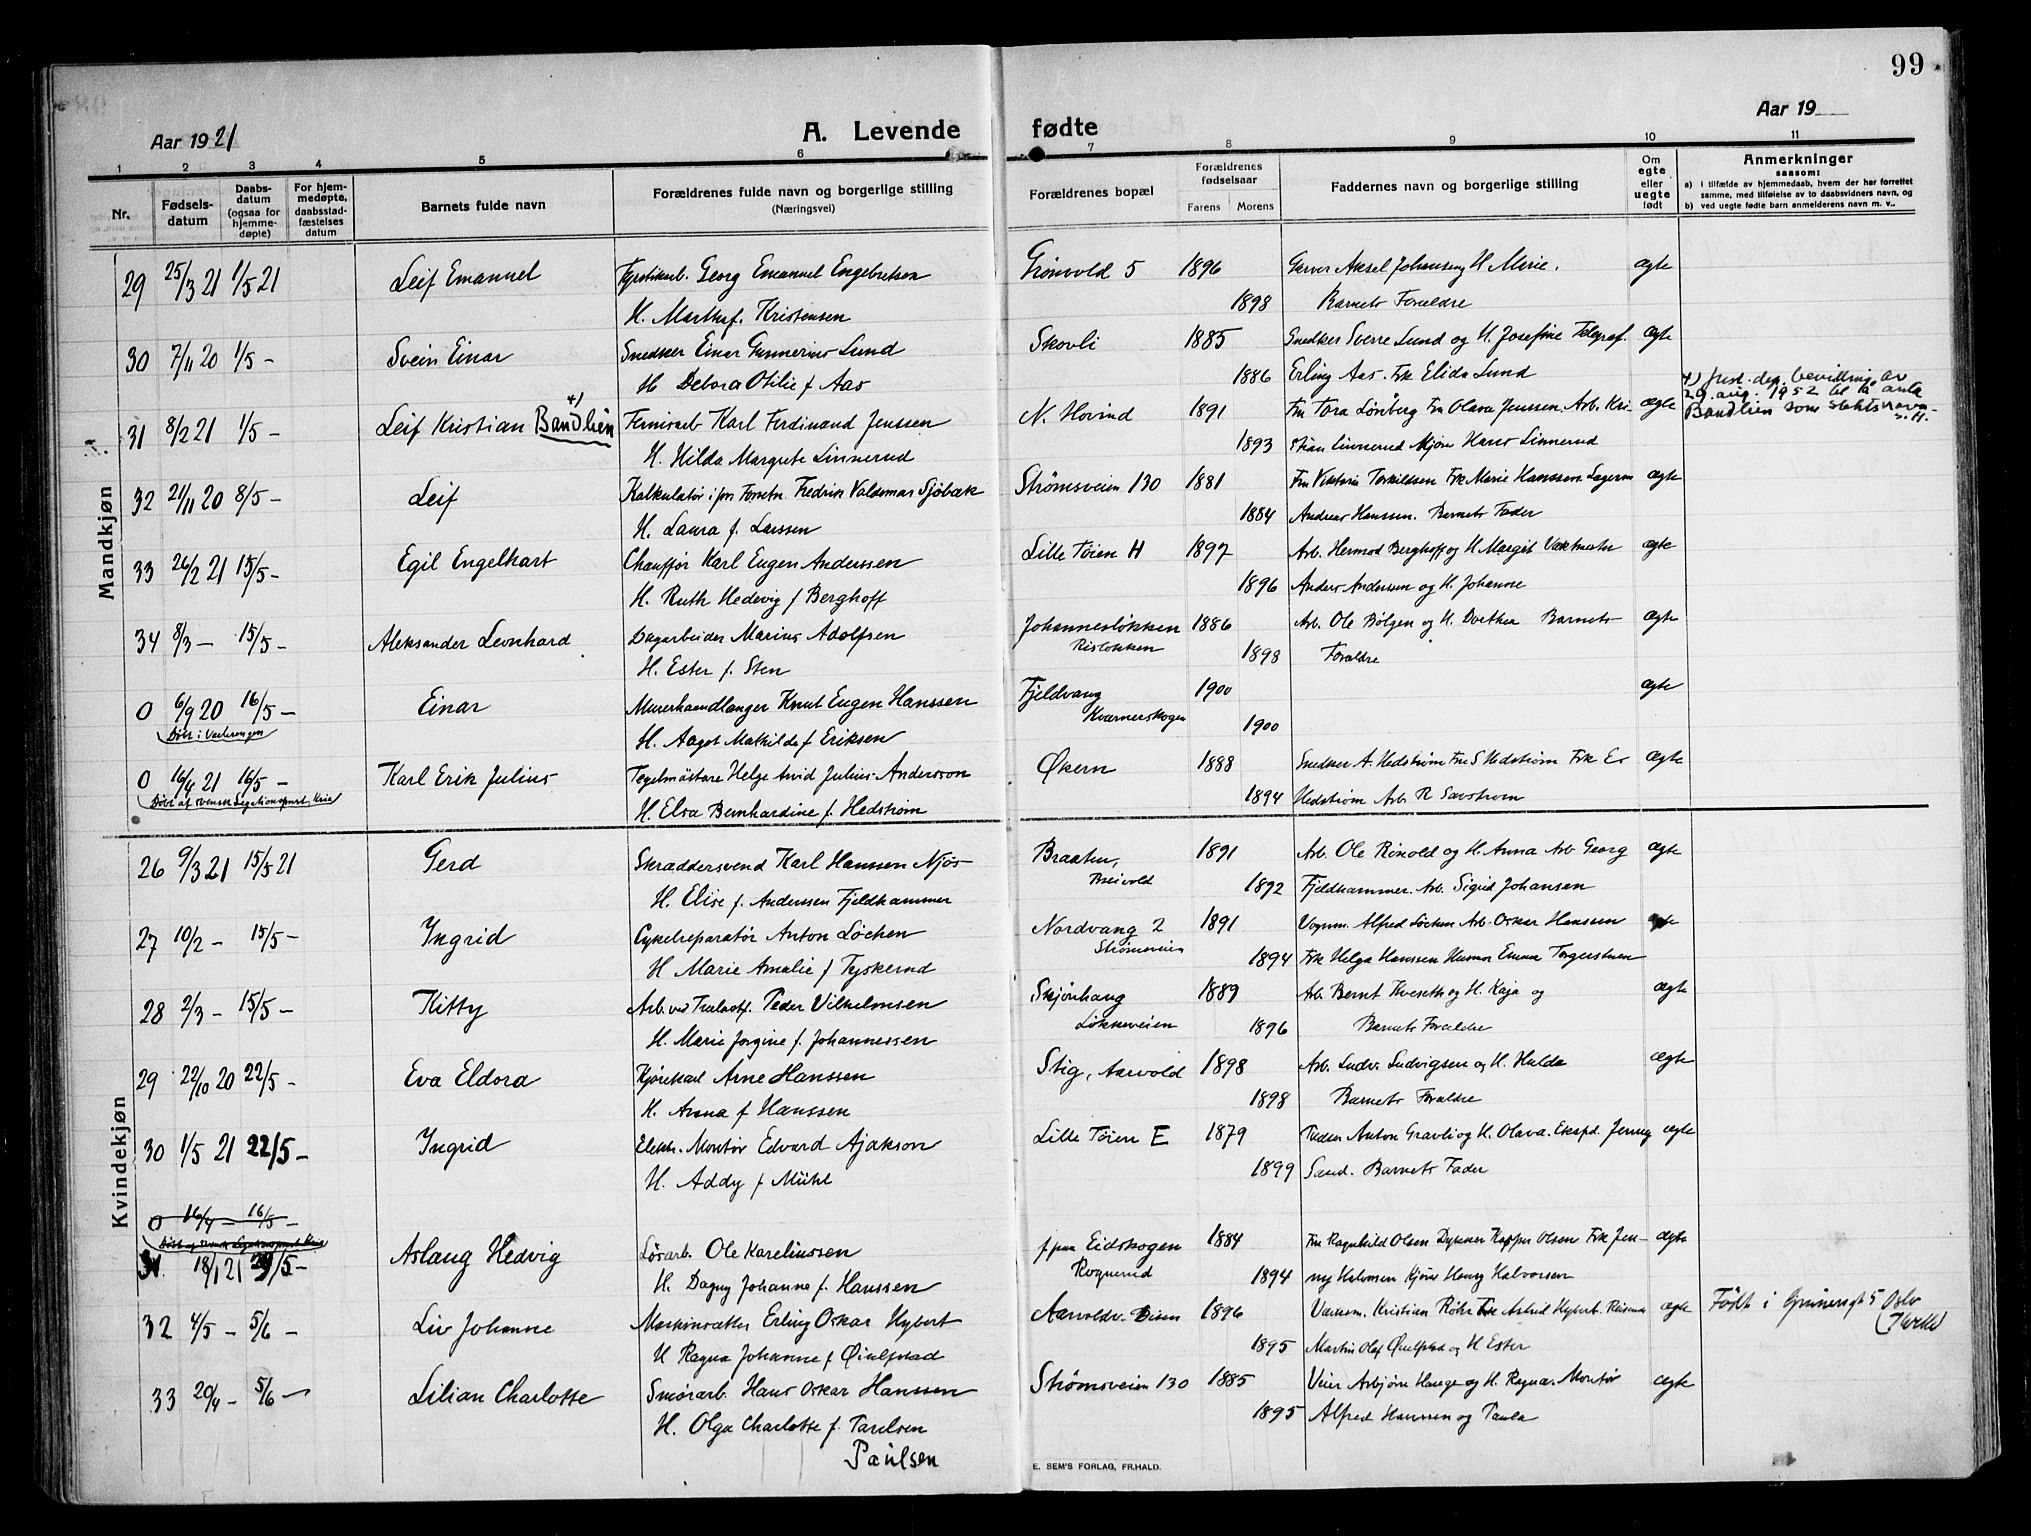 99
Aar 1921
A. Levende fødte
Aar 19
1 2 3 4 5 6 7 8 9 10 11
Nr.
Fødsels-
datum
Daabs-
datum
(ogsaa for
hjemme-
døpte)
For hjem-
medøpte,
daabsstad-
fæstelses
datum
Barnets fulde navn
Forældrenes fulde navn og borgerlige stilling
(Næringsvei)
Forældrenes bopæl
Forældrenes
fødselsaar
Farens Morens
Faddernes navn og borgerlige stilling
Om
egte
eller
uegte
født
Anmerkninger
saasom:
a) i tilfælde av hjemmedaab, hvem der har forrettet
samme, med tilføielse av to daabsvidners navn, og
b) ved uegte fødte barn anmelderens navn m. v..
Mandkjøn
29 25/3 21 1/5 21 Leif Emanuel Georg Emanuel Engebretsen Grönvold 5 1896 Garver Aksel Johansen og H. Marie. ægte
H. Martha f. Kristensen 1898 Barnets Forældre
30 7/11 20 1/5 – Svein Einar Snedker Einar Gunnerius Lund Skovli 1885 Snedker Sverre Lund og H. Josefine Telegraf. ægte
H Debora Otilie f Aas 1886 Erling Aas. Frk Elida Lund
31 8/2 21 1/5 – Leif Kristian Bandlien +) Fernisarb Karl Ferdinand Jenssen N. Hovind 1891 Fru Tora Lönberg Fru Olava Jenssen Arb. Kri- ægte
+) Just. dep. bevilling av
29. aug. 1952 til å anta
Bandlien som slektsnavn
H. Hilda Margrete Linnerud 1893 stian Linnerud Mjøn Hans Linnerud
32 21/11 20 8/5 – Leif Kalkulatør Fredrik Valdemar Sjöbæk Strømsveien 130 1881 Fru Viktoria Torkildsen Frk Marie Hanssen Lagerm ægte
H. Laura f. Larssen 1884 Andreas Hanssen. Barnets Fader
33 26/2 21 15/5 – Egil Engelhart Chauffør Karl Eugen Anderssen Lille Töien H 1897 Arb. Hermod Berghoff og H. Margit Vaktmester ægte
H. Ruth Hedevig f Berghoff 1896 Anders Andersen og H. Johanne
34 8/3 – 15/5 – Aleksander Leonhard Dagarbeider Marius Adolfsen Johannesløkken 1886 Arb. Ole Bølgen og H. Dorthea Barnets ægte
Risløkken
H. Ester f. Sten 1898 Forældre
0 6/9 20 16/5 – Einar Murerhaandlanger Knut Eugen Hanssen Fjeldvang 1900 ægte
Døbt i Vaalerengen
Kværnerskogen
H. Aagot Mathilde f Eriksen 1900
0 16/4 21 16/5 – Karl Erik Julius Tegelmästare Helge Arvid Julius Andersson Økern 1888 Snedker A. Hedström Fru S Hedström Frk Er ægte
Døbt af svensk Legationspræst, Kria
H. Elsa Bernhardine f. Hedström 1894 Hedström Arb. R Savstrom
Kvindekjøn
26 9/3 21 15/5 21 Gerd Skræddersvend Karl Hanssen Njös Braaten, 1891 Arb. Ole Rinold og H. Anna Arb Georg ægte
Breivold
H. Elise f. Anderssen Fjeldhammer 1892 Fjeldhammer. Arb. Sigrid Johansen
27 10/2 – 15/5 – Ingrid Cykelreparatör Anton Löchen Nordvang 2 1891 Vognm. Alfred Löchen Arb. Oskar Hanssen ægte
Strømsveien
H Marie Amalie f Tyskerud 1894 Frk Helga Hanssen Husmor Emma Torgerstuen
28 2/3 – 15/5 – Kitty Arb. ved Peder Vilhelmsen Skjönhaug 1889 Arb. Bernt Kveseth og H. Kaja og ægte
Løkkeveien
H. Marie Jorgine f. Johannessen 1896 Barnets Forældre
29 22/10 20 22/5 – Eva Eldora Kjörekarl Arne Hanssen Stig, Aarvold 1898 Arb. Ludv. Ludvigsen og H. Hulda ægte
H. Anna f Hanssen 1898 Barnets Forældre
30 1/5 21 22/5 – Ingrid Elektr. Montör Edvard Ajakson Lille Töien E 1879 Anton Gravli og H. Olava. Ekspd. Jenny ægte
H. Addy f Mühl 1899 Sand. Barnets Fader
0 16/4 – 16/5 –
Døbt af svensk Legationspræst Kria
31. 18/1 21 29/5 – Aslaug Hedvig Lösarb. Ole Kareliussen Eidskogen 1884 Fru Ragnhild Olsen Dykker Olsen Frk Jen- ægte
Rognerud
H. Dagny Johanne f. Hanssen 1894 ny Halvorsen Kjører Henry Halvorsen
32 4/5 – 5/6 – Liv Johanne Maskinsætter Erling Oskar Hybert Aarvoldv. Disen 1896 Værksm. Kristian Röhr Frk Astrid Hybert. ægte Födt i Grünersgt 5 Oslo
H Ragna Johanne f Qvilfstad 1895 Martin Olaf Qvilfstad og H Ester
33 20/4 – 5/6 – Lilian Charlotte Smørarb. Hans Oskar Hanssen Strømsveien 130 1885 Veier Asbjørn Hauge og H. Ragna. Montör ægte
H. Olga Charlotte f. Paulsen 1895 Alfred Hanssen og Paula
Paulsen
E. SEM'S FORLAG, FR.HALD.